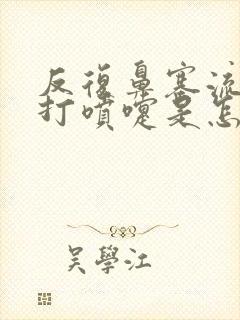 反復鼻塞流
打噴嚏是怎
吳學江